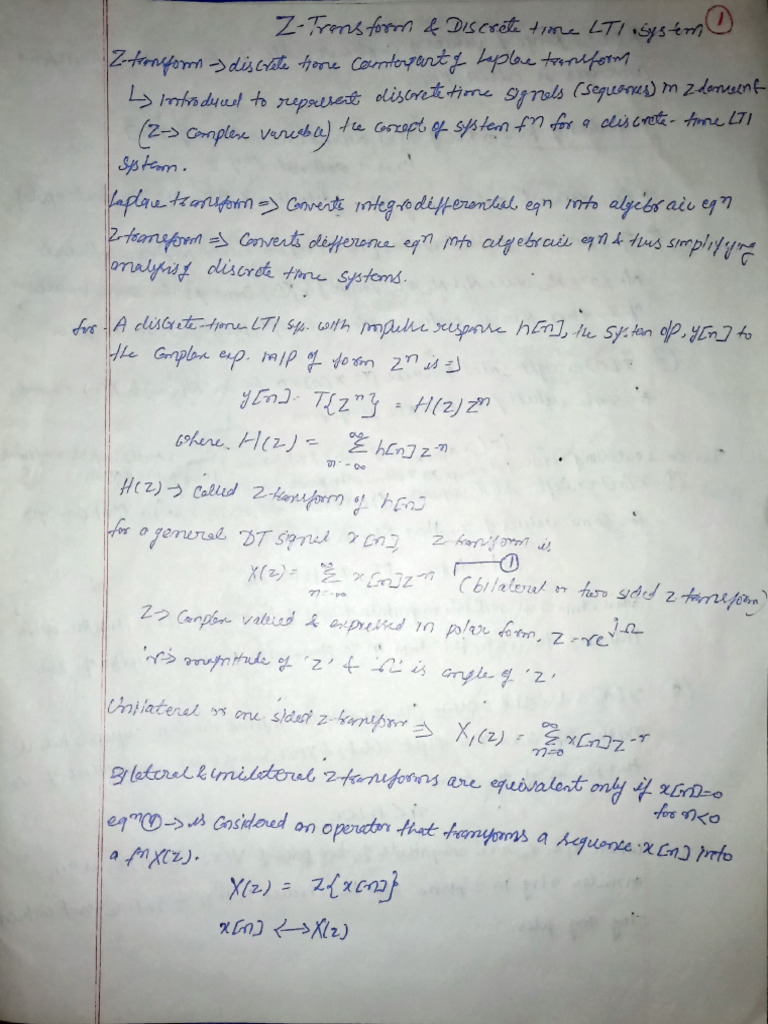 Z-Transform & Discrete time LTI system ①
Z-transform → discrete time counterpart of Laplace transform
↳ introduced to represent discrete time signals (sequences) in z domain
(Z → complex variable) the concept of system fn for a discrete-time LTI
system.
Laplace transform ⇒ converts integrodifferential eqn into algebraic eqn
Z-transform ⇒ converts difference eqn into algebraic eqn & thus simplifying
analysis of discrete time systems.
for - A discrete-time LTI sys. with impulse response h[n], the system o/p, y[n] to
the complex exp. i/p of form zⁿ is ⇒
y[n] = T{zⁿ} = H(z)zⁿ
where, H(z) = ∞ Σ n=-∞ h[n] z⁻ⁿ
H(z) → called z-transform of h[n]
for a general DT signal x[n], z transform is
X(z) = ∞ Σ n=-∞ x[n] z⁻ⁿ ①
(bilateral or two sided z transform)
Z → complex valued & expressed in polar form, z = re^jΩ
'r' → magnitude of 'z' & 'Ω' is angle of 'z'.
Unilateral or one sided z-transform ⇒ X₁(z) = ∞ Σ n=0 x[n] z⁻ⁿ
Bilateral & unilateral z transforms are equivalent only if x[n]=0
for n<0
eqn ① → is considered an operator that transforms a sequence x[n] into
a fn X(z).
X(z) = Z{x[n]}
x[n] ↔ X(z)